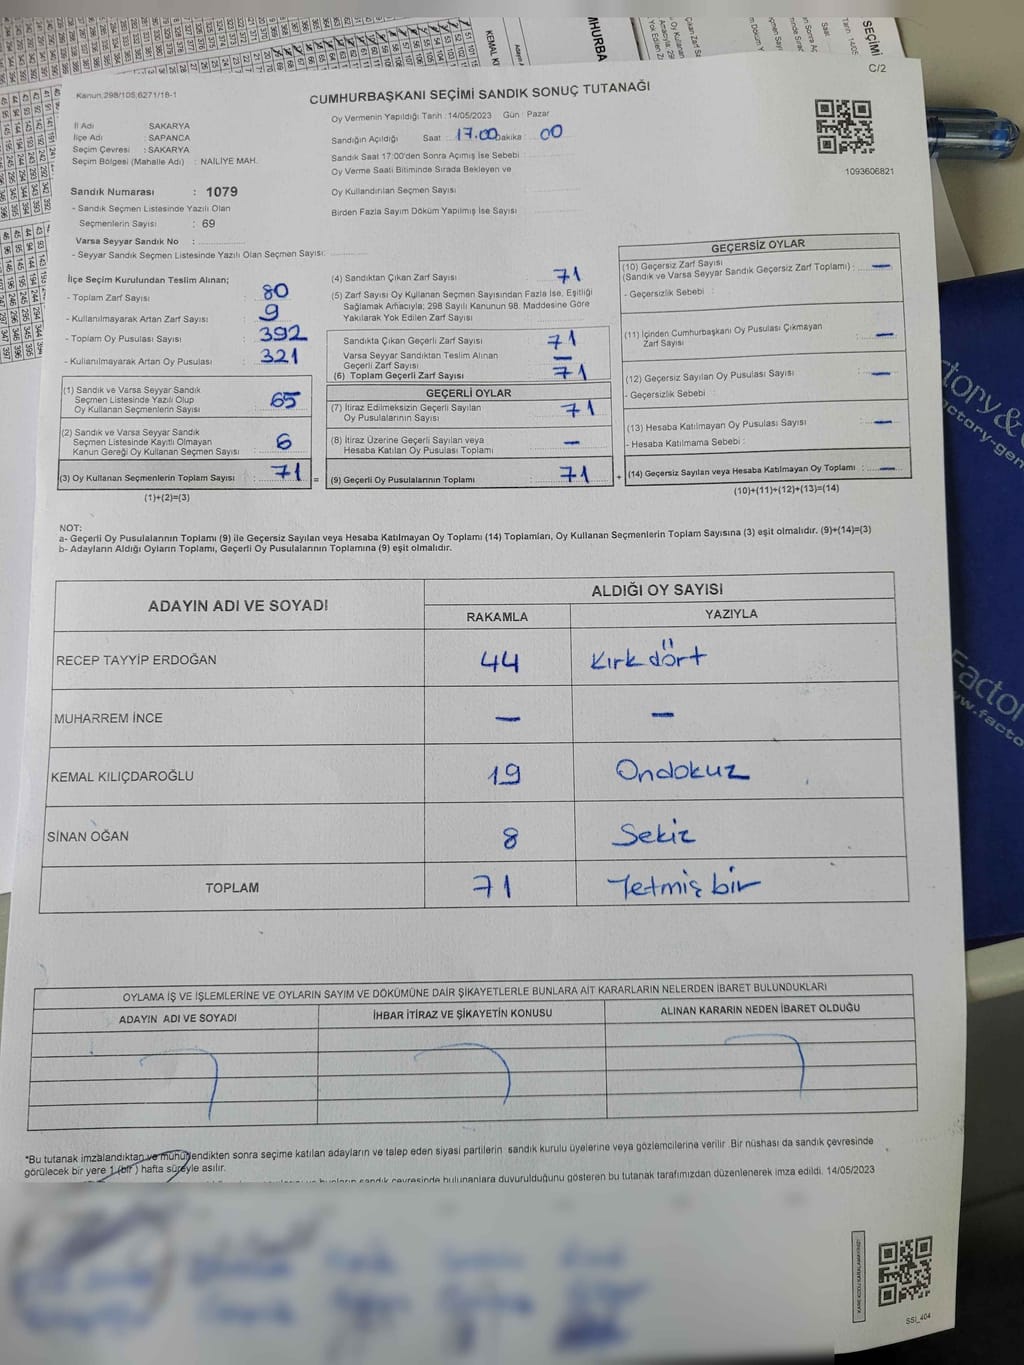 Kanun:298/105;6271/18-1
C/2
CUMHURBAŞKANI SEÇİMİ SANDIK SONUÇ TUTANAĞI
İl Adı SAKARYA
İlçe Adı : SAPANCA
Seçim Çevresi : SAKARYA
Seçim Bölgesi (Mahalle Adı) : NAİLİYE MAH.
Oy Vermenin Yapıldığı Tarih : 14/05/2023 Gün : Pazar
Sandığın Açıldığı Saat : 17.00 Dakika : 00
Sandık Saat 17:00'den Sonra Açımış İse Sebebi
Oy Verme Saati Bitiminde Sırada Bekleyen ve
Oy Kullandırılan Seçmen Sayısı
Birden Fazla Sayım Döküm Yapılmış İse Sayısı
1093606821
Sandık Numarası : 1079
- Sandık Seçmen Listesinde Yazılı Olan
Seçmenlerin Sayısı : 69
Varsa Seyyar Sandık No :
- Seyyar Sandık Seçmen Listesinde Yazılı Olan Seçmen Sayısı:
İlçe Seçim Kurulundan Teslim Alınan;
- Toplam Zarf Sayısı : 80
- Kullanılmayarak Artan Zarf Sayısı : 9
- Toplam Oy Pusulası Sayısı : 392
- Kullanılmayarak Artan Oy Pusulası : 321
(1) Sandık ve Varsa Seyyar Sandık
Seçmen Listesinde Yazılı Olup
Oy Kullanan Seçmenlerin Sayısı : 65
(2) Sandık ve Varsa Seyyar Sandık
Seçmen Listesinde Kayıtlı Olmayan
Kanun Gereği Oy Kullanan Seçmen Sayısı : 6
(3) Oy Kullanan Seçmenlerin Toplam Sayısı : 71 =
(1)+(2)=(3)
(4) Sandıktan Çıkan Zarf Sayısı 71
(5) Zarf Sayısı Oy Kullanan Seçmen Sayısından Fazla İse, Eşitliği
Sağlamak Amacıyla; 298 Sayılı Kanunun 98. Maddesine Göre
Yakılarak Yok Edilen Zarf Sayısı
Sandıkta Çıkan Geçerli Zarf Sayısı 71
Varsa Seyyar Sandıktan Teslim Alınan
Geçerli Zarf Sayısı —
(6) Toplam Geçerli Zarf Sayısı 71
GEÇERLİ OYLAR
(7) İtiraz Edilmeksizin Geçerli Sayılan
Oy Pusulalarının Sayısı 71
(8) İtiraz Üzerine Geçerli Sayılan veya
Hesaba Katılan Oy Pusulası Toplamı —
(9) Geçerli Oy Pusulalarının Toplamı 71 +
GEÇERSİZ OYLAR
(10) Geçersiz Zarf Sayısı
(Sandık ve Varsa Seyyar Sandık Geçersiz Zarf Toplamı) : —
- Geçersizlik Sebebi :
(11) İçinden Cumhurbaşkanı Oy Pusulası Çıkmayan
Zarf Sayısı —
(12) Geçersiz Sayılan Oy Pusulası Sayısı —
- Geçersizlik Sebebi :
(13) Hesaba Katılmayan Oy Pusulası Sayısı —
- Hesaba Katılmama Sebebi :
(14) Geçersiz Sayılan veya Hesaba Katılmayan Oy Toplamı : —
(10)+(11)+(12)+(13)=(14)
NOT:
a- Geçerli Oy Pusulalarının Toplamı (9) ile Geçersiz Sayılan veya Hesaba Katılmayan Oy Toplamı (14) Toplamları, Oy Kullanan Seçmenlerin Toplam Sayısına (3) eşit olmalıdır. (9)+(14)=(3)
b- Adayların Aldığı Oyların Toplamı, Geçerli Oy Pusulalarının Toplamına (9) eşit olmalıdır.
ADAYIN ADI VE SOYADI
ALDIĞI OY SAYISI
RAKAMLA YAZIYLA
RECEP TAYYİP ERDOĞAN 44 Kırk dört
MUHARREM İNCE — —
KEMAL KILIÇDAROĞLU 19 Ondokuz
SİNAN OĞAN 8 Sekiz
TOPLAM 71 Yetmiş bir
OYLAMA İŞ VE İŞLEMLERİNE VE OYLARIN SAYIM VE DÖKÜMÜNE DAİR ŞİKAYETLERLE BUNLARA AİT KARARLARIN NELERDEN İBARET BULUNDUKLARI
ADAYIN ADI VE SOYADI İHBAR İTİRAZ VE ŞİKAYETİN KONUSU ALINAN KARARIN NEDEN İBARET OLDUĞU
*Bu tutanak imzalandıktan ve mühürlendikten sonra seçime katılan adayların ve talep eden siyasi partilerin sandık kurulu üyelerine veya gözlemcilerine verilir Bir nüshası da sandık çevresinde
görülecek bir yere 1 (bir) hafta süreyle asılır.
sandık çevresinde bulunanlara duyurulduğunu gösteren bu tutanak tarafımızdan düzenlenerek imza edildi. 14/05/2023
KARE KODU KARALAMAYINIZ!
SSI_404